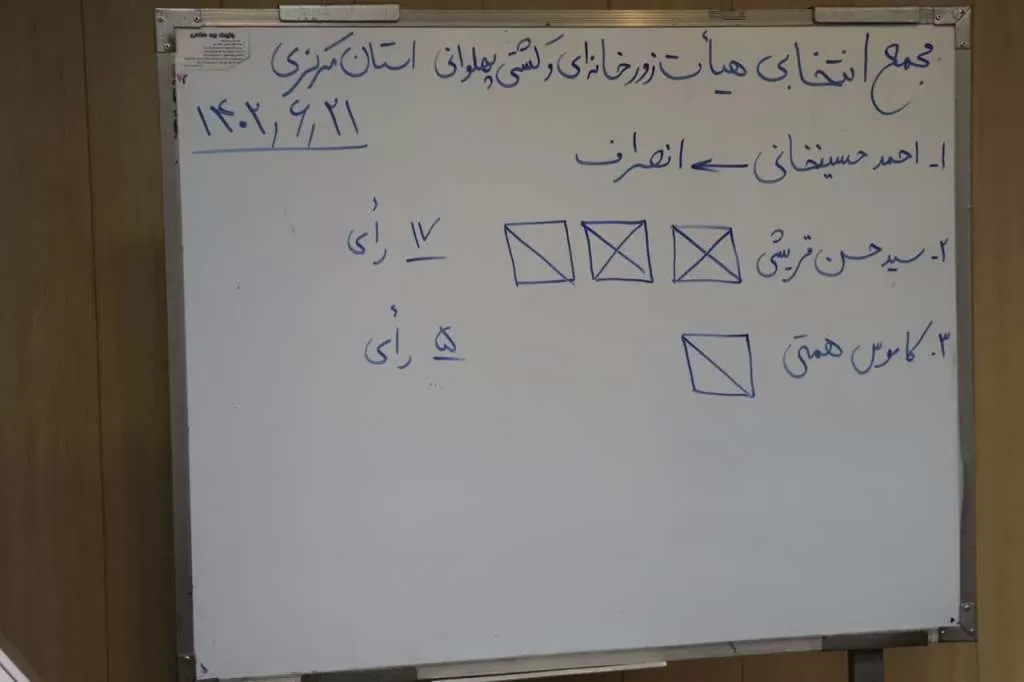 مجمع انتخابی هیأت زورخانه‌ای و کشتی پهلوانی استان مرکزی
۱۴۰۲٫۶٫۲۱
۱- احمد حسینخانی ← انصراف
۲- سید حسن قریشی ۱۷ رأی
۳. کاموس همتی ۵ رأی